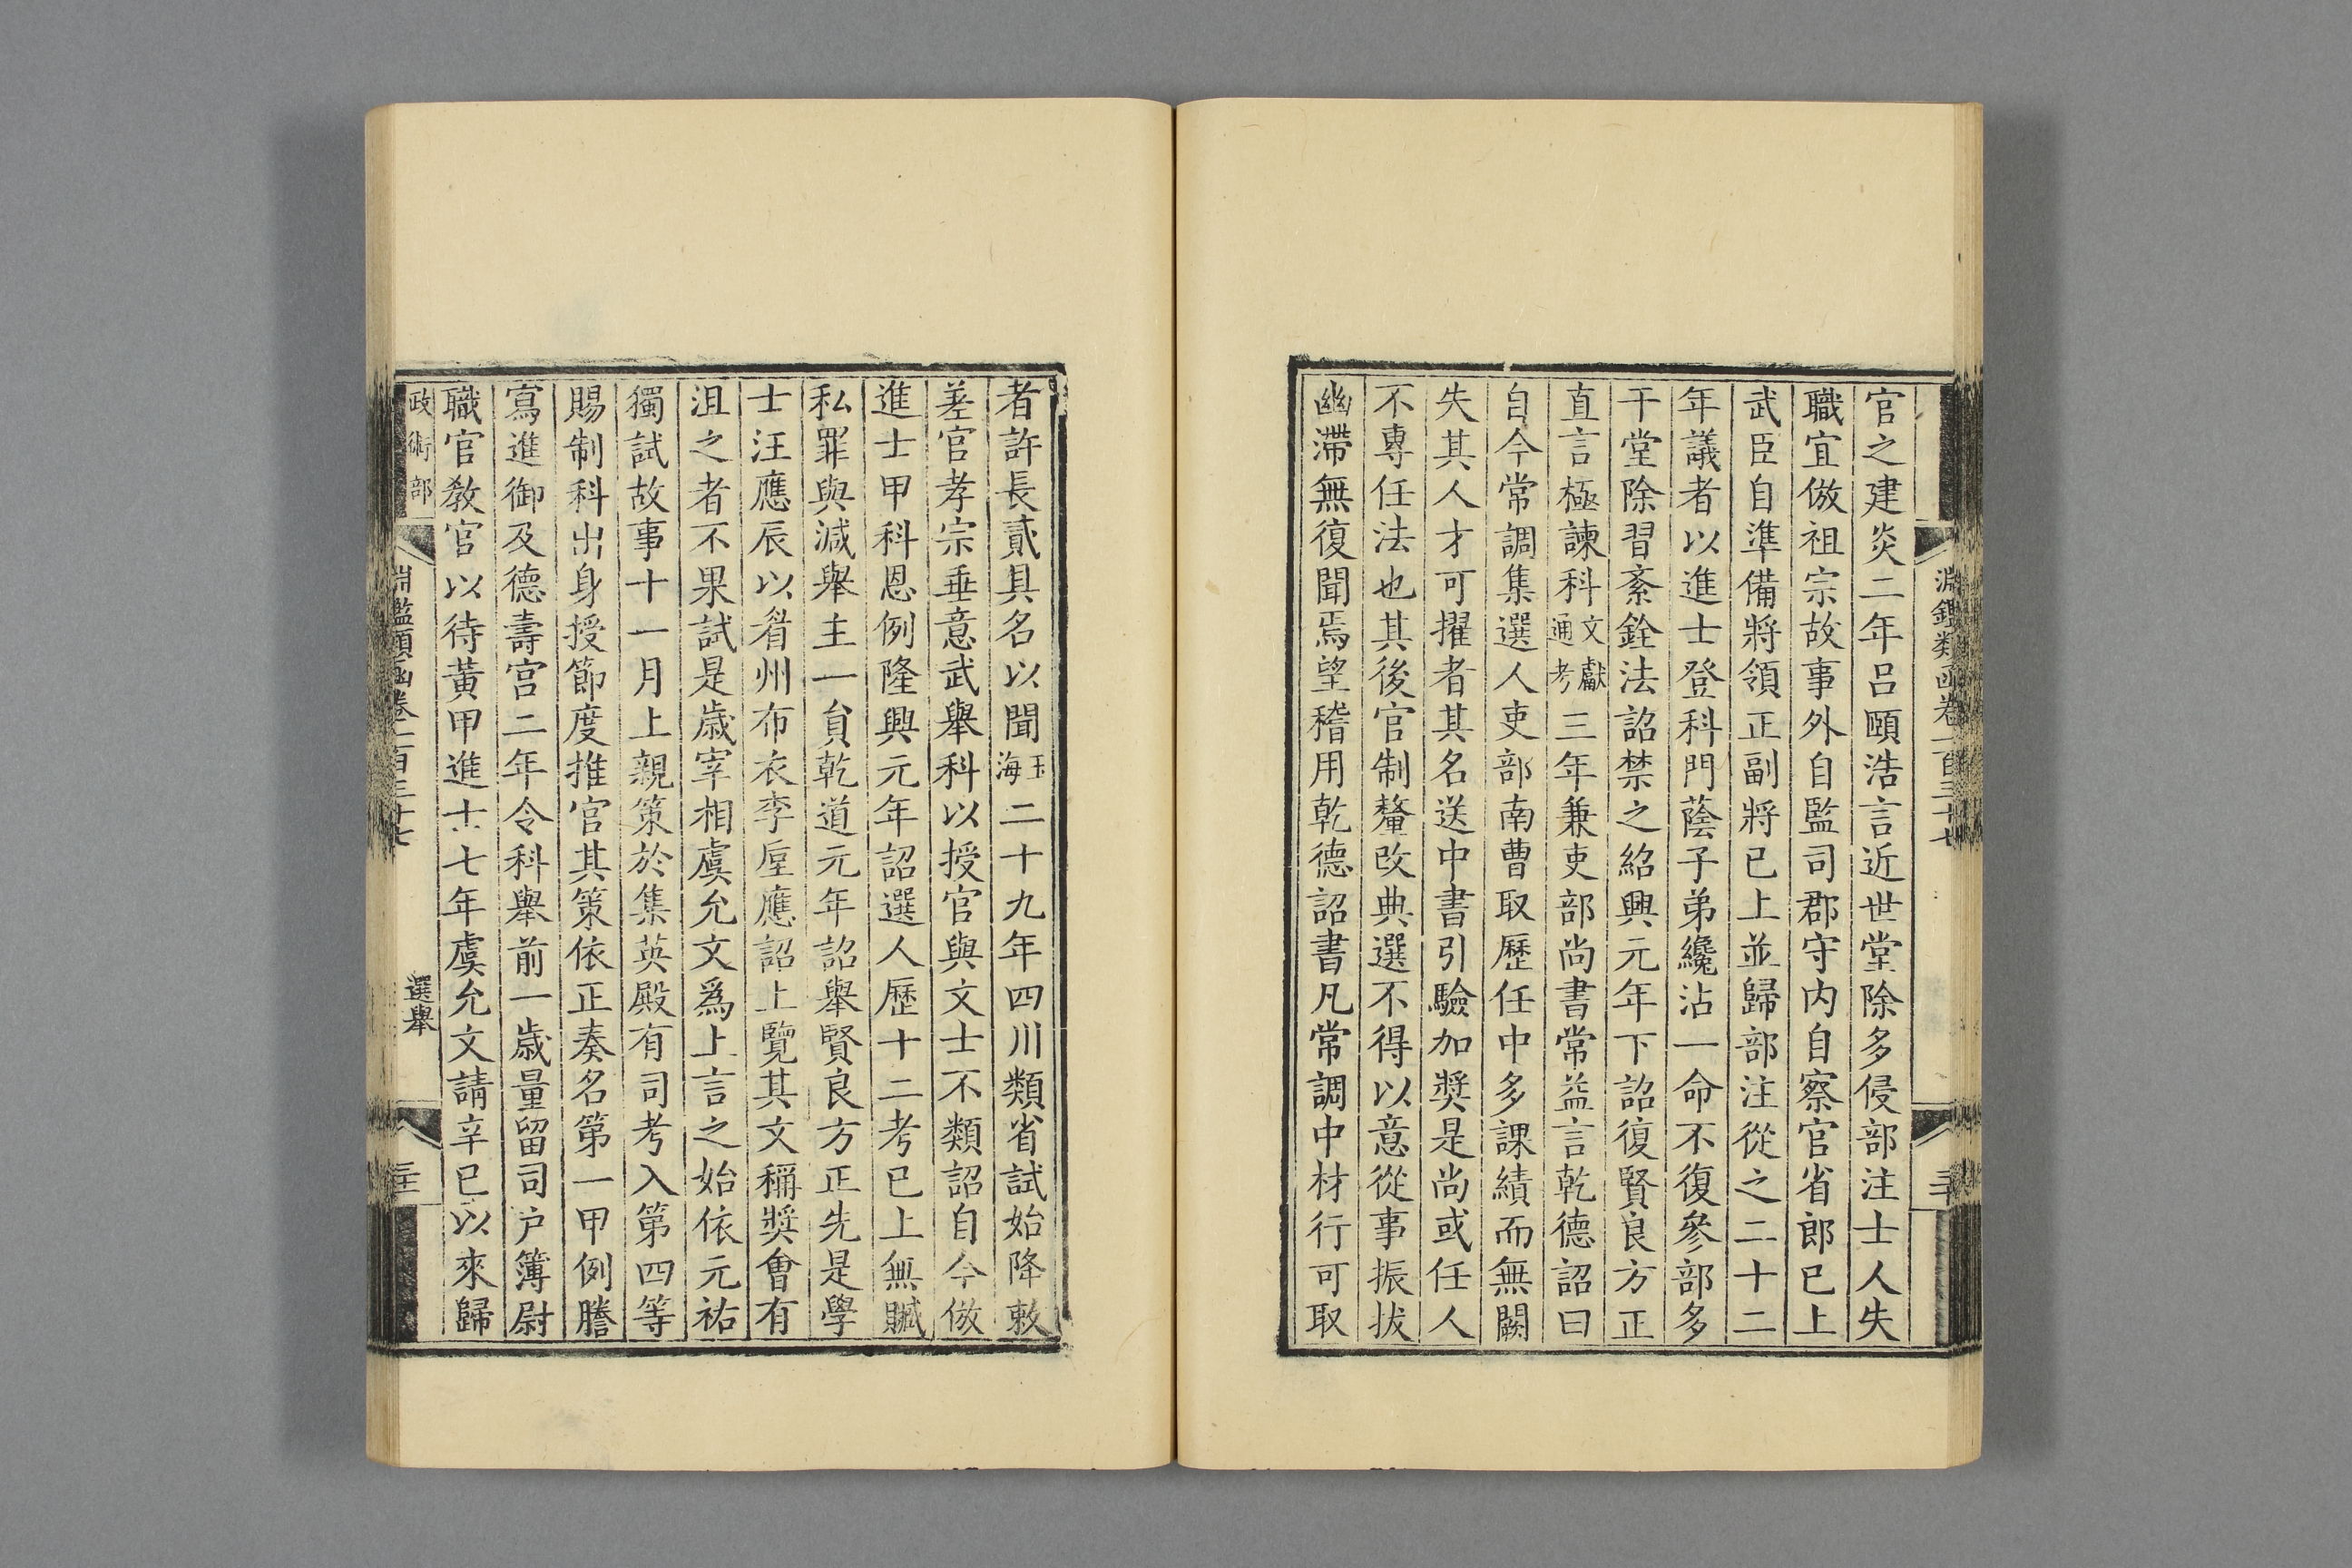 淵鑑類函卷一百三十七
官之建炎二年呂頤浩言近世堂除多侵部注士人失
職宜倣祖宗故事外自監司郡守内自察官省郎已上
武臣自準備將領正副將已上並歸部注從之二十二
年議者以進士登科門蔭子弟纔沾一命不復參部多
干堂除習紊銓法詔禁之紹興元年下詔復賢良方正
直言極諫科文獻通考三年兼吏部尚書常益言乾德詔曰
自今常調集選人吏部南曹取歷任中多課績而無闕
失其人才可擢者其名送中書引驗加奬是尚或任人
不專任法也其後官制釐改典選不得以意從事振拔
幽滯無復聞焉望稽用乾德詔書凡常調中材行可取
者許長貳具名以聞玉海二十九年四川類省試始降敕
差官孝宗垂意武舉科以授官與文士不類詔自今倣
進士甲科恩例隆興元年詔選人歷十二考已上無贓
私罪與減舉主一貟乾道元年詔舉賢良方正先是學
士汪應辰以眉州布衣李垕應詔上覽其文稱奬會有
沮之者不果試是歲宰相虞允文爲上言之始依元祐
獨試故事十一月上親策於集英殿有司考入第四等
賜制科出身授節度推官其策依正奏名第一甲例謄
寫進御及德壽宮二年令科舉前一歲量留司户簿尉
職官教官以待黃甲進士七年虞允文請辛已以來歸
政術部
淵鑑類函卷一百三十七
選舉